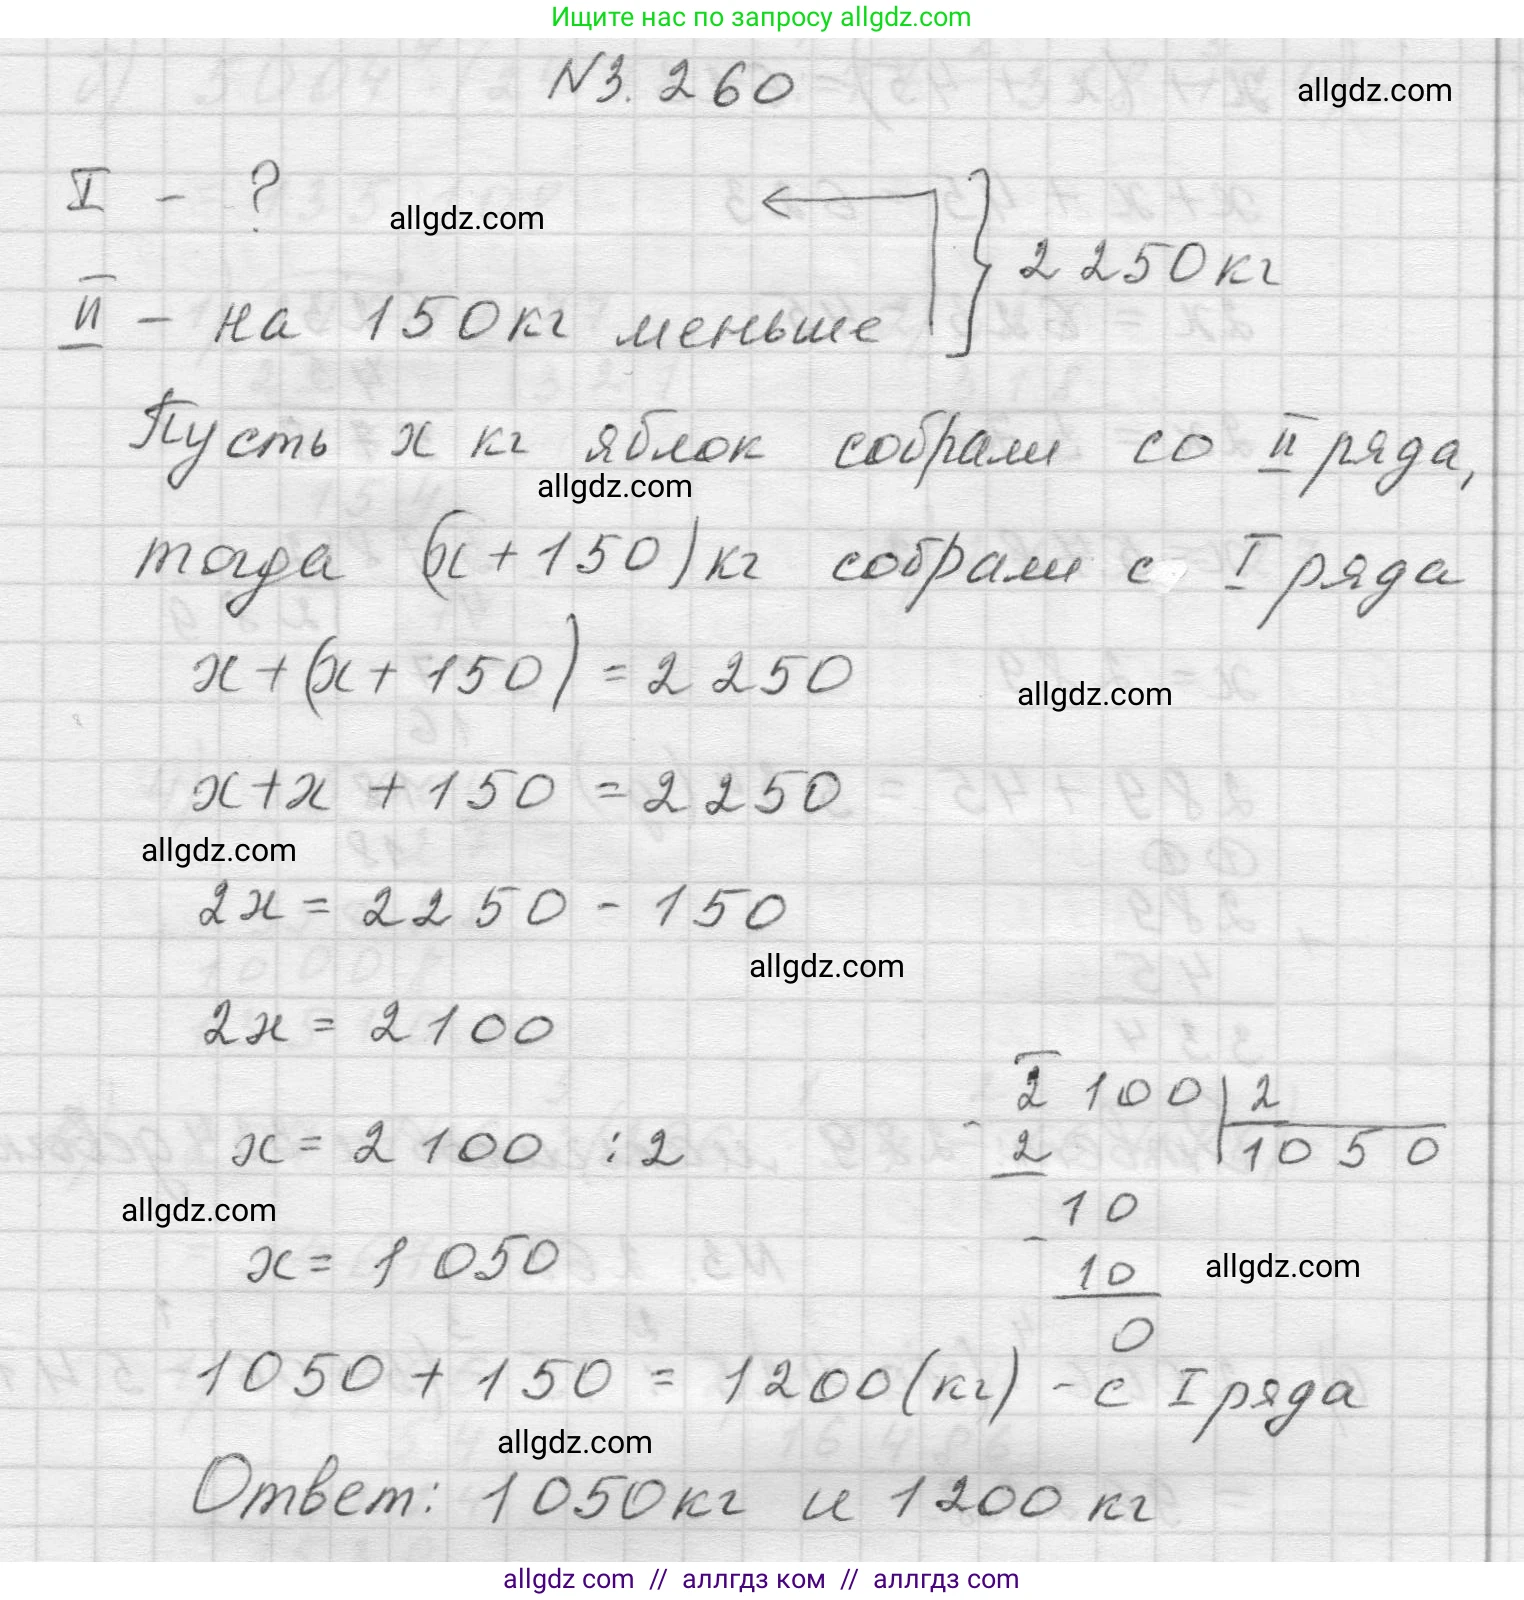 Ищите нас по запросу allgdz.com
N3.260
allgdz.com
I - ?
allgdz.com
II - на 150 кг меньше } 2250 кг
Пусть x кг яблок собрали со II ряда,
allgdz.com
тогда (x + 150) кг собрали с I ряда
x + (x + 150) = 2250
allgdz.com
x + x + 150 = 2250
allgdz.com
2x = 2250 - 150
allgdz.com
2x = 2100
2100 | 2
x = 2100 : 2
- 2 1050
allgdz.com
10
x = 1050
- 10
allgdz.com
0
1050 + 150 = 1200 (кг) - с I ряда
allgdz.com
Ответ: 1050 кг и 1200 кг
allgdz com // аллгдз ком // аллгдз com